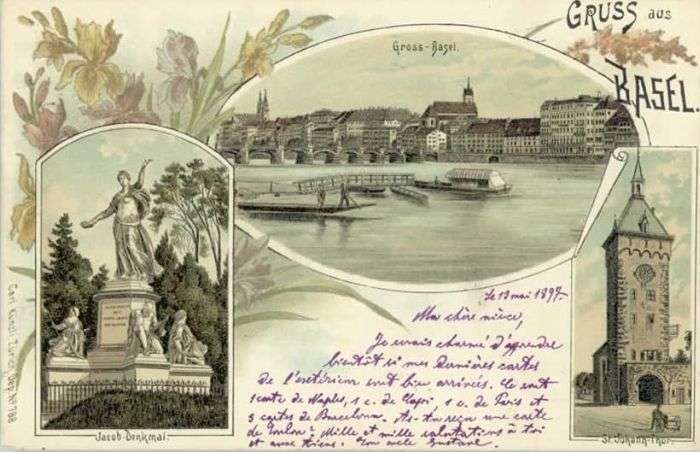 GRUSS aus
BASEL.
Gross-Basel.
Jacob-Denkmal.
St. Johann-Thor.
Carl Künzli, Zürich, Dep. No 788
Le 13 mai 1897.
Ma chère nièce,
Je serais charmé d'apprendre
bientôt si mes dernières cartes
de l'extérieur sont bien arrivées. Ce sont
1 carte de Naples, 1 c. de Capri, 1 c. de Paris et
3 cartes de Barcelona. As-tu reçu une carte
de Toulon? Mille et mille salutations à toi
et aux tiens. Ton oncle Gustave.